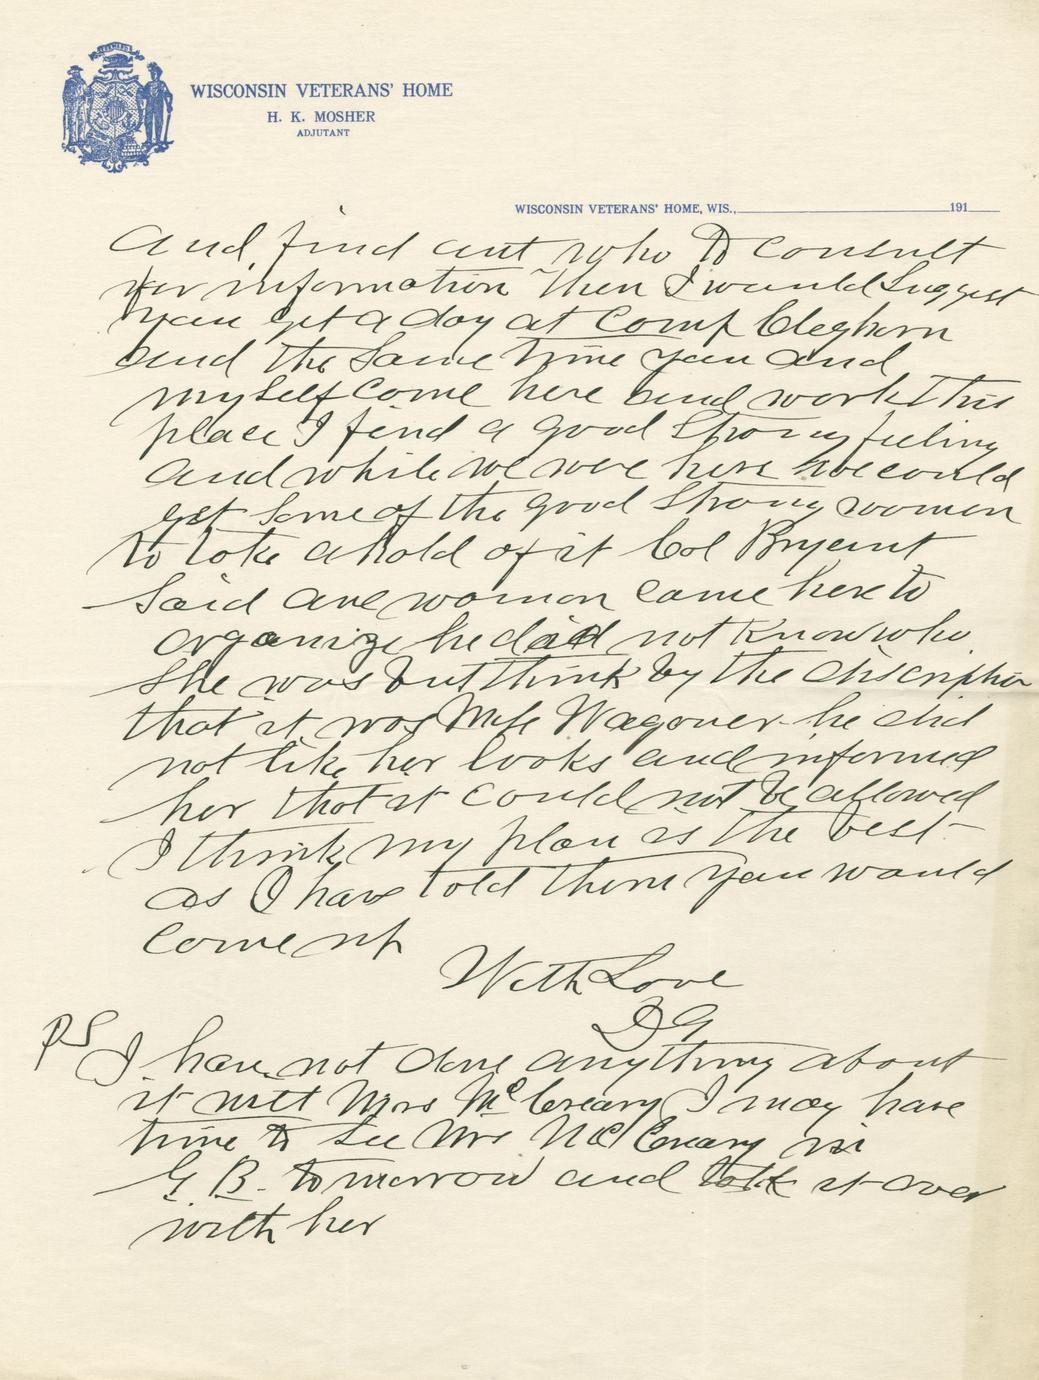 WISCONSIN VETERANS' HOME
H. K. MOSHER
ADJUTANT
WISCONSIN VETERANS' HOME, WIS., 191
And find out who to consult
for information Then I would Suggest
you get a day at Camp Cleghorn
and the Same time you and
myself come here and work this
place I find a good Strong feeling
and while we were here we could
get Some of the good Strong women
to take ahold of it Col Bryant
Said one woman came here to
organize he did not Know who
She was but think by the discription
that it was Mife Wagoner he did
not like her looks and informed
her that it could not be allowed
I think my plan is the best
as I have told them you would
come up
With Love
DG
PS
I have not done anything about
it with Mrs McCreary I may have
time to See Mrs McCreary in
G B. tomorrow and talk it over
with her